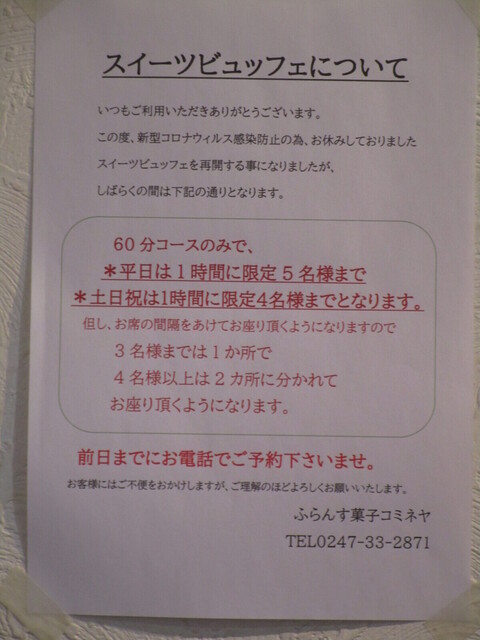 スイーツビュッフェについて
いつもご利用いただきありがとうございます。
この度、新型コロナウィルス感染防止の為、お休みしておりました
スイーツビュッフェを再開する事になりましたが、
しばらくの間は下記の通りとなります。
60分コースのみで、
＊平日は1時間に限定5名様まで
＊土日祝は1時間に限定4名様までとなります。
但し、お席の間隔をあけてお座り頂くようになりますので
3名様までは1か所で
4名様以上は2カ所に分かれて
お座り頂くようになります。
前日までにお電話でご予約下さいませ。
お客様にはご不便をおかけしますが、ご理解のほどよろしくお願いいたします。
ふらんす菓子コミネヤ
TEL0247-33-2871